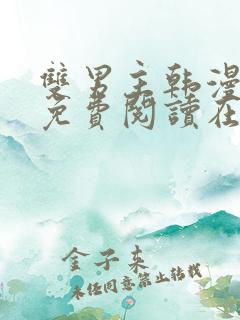 雙男主韩漫
免費閱讀在
金子来
未经同意禁止转载